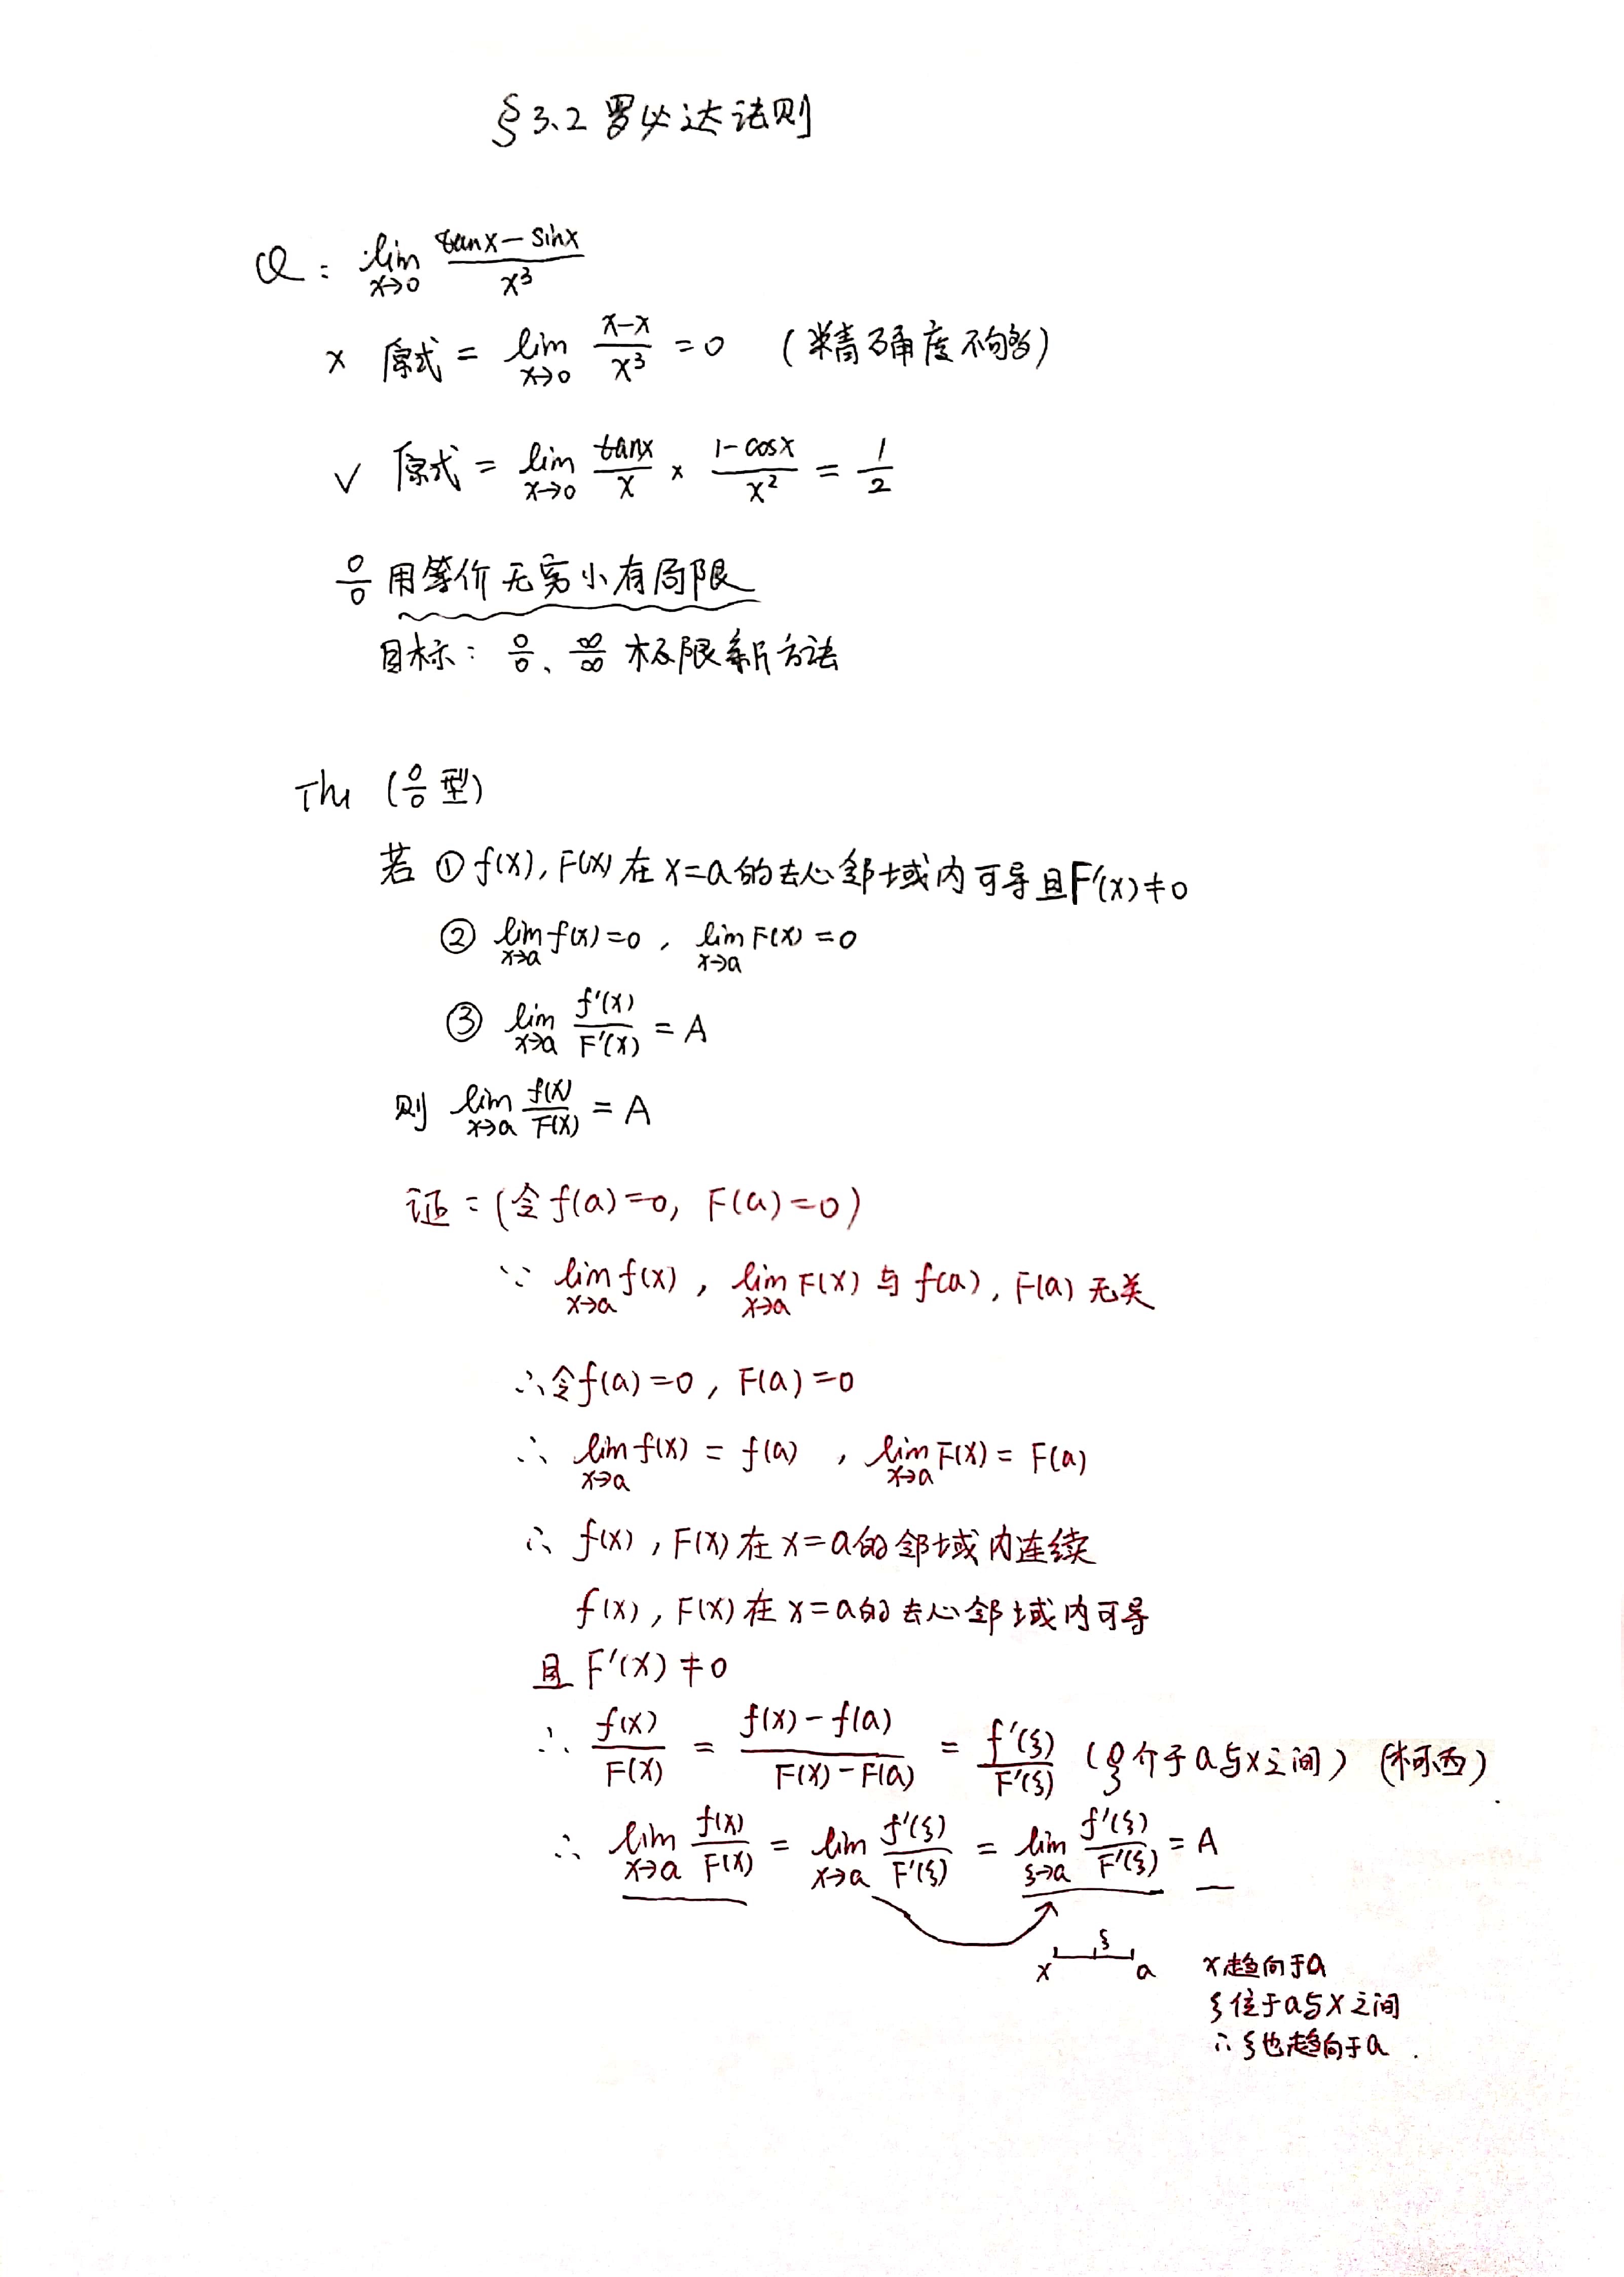 §3.2 罗必达法则
Q: lim_{x→0} (tanx - sinx)/x³
× 原式 = lim_{x→0} (x-x)/x³ = 0 (精确度不够)
√ 原式 = lim_{x→0} tanx/x × (1-cosx)/x² = 1/2
0/0 用等价无穷小有局限
目标: 0/0、∞/∞ 极限新方法
Th1 (0/0 型)
若 ① f(x), F(x) 在 x=a 的去心邻域内可导且 F'(x)≠0
② lim_{x→a} f(x)=0, lim_{x→a} F(x)=0
③ lim_{x→a} f'(x)/F'(x) = A
则 lim_{x→a} f(x)/F(x) = A
证: (令 f(a)=0, F(a)=0)
∵ lim_{x→a} f(x), lim_{x→a} F(x) 与 f(a), F(a) 无关
∴ 令 f(a)=0, F(a)=0
∴ lim_{x→a} f(x) = f(a), lim_{x→a} F(x) = F(a)
∴ f(x), F(x) 在 x=a 的邻域内连续
f(x), F(x) 在 x=a 的去心邻域内可导
且 F'(x)≠0
∴ f(x)/F(x) = (f(x)-f(a))/(F(x)-F(a)) = f'(ξ)/F'(ξ) (ξ介于a与x之间) (柯西)
∴ lim_{x→a} f(x)/F(x) = lim_{x→a} f'(ξ)/F'(ξ) = lim_{ξ→a} f'(ξ)/F'(ξ) = A
x ξ a
x趋向于a
ξ位于a与x之间
∴ ξ也趋向于a.